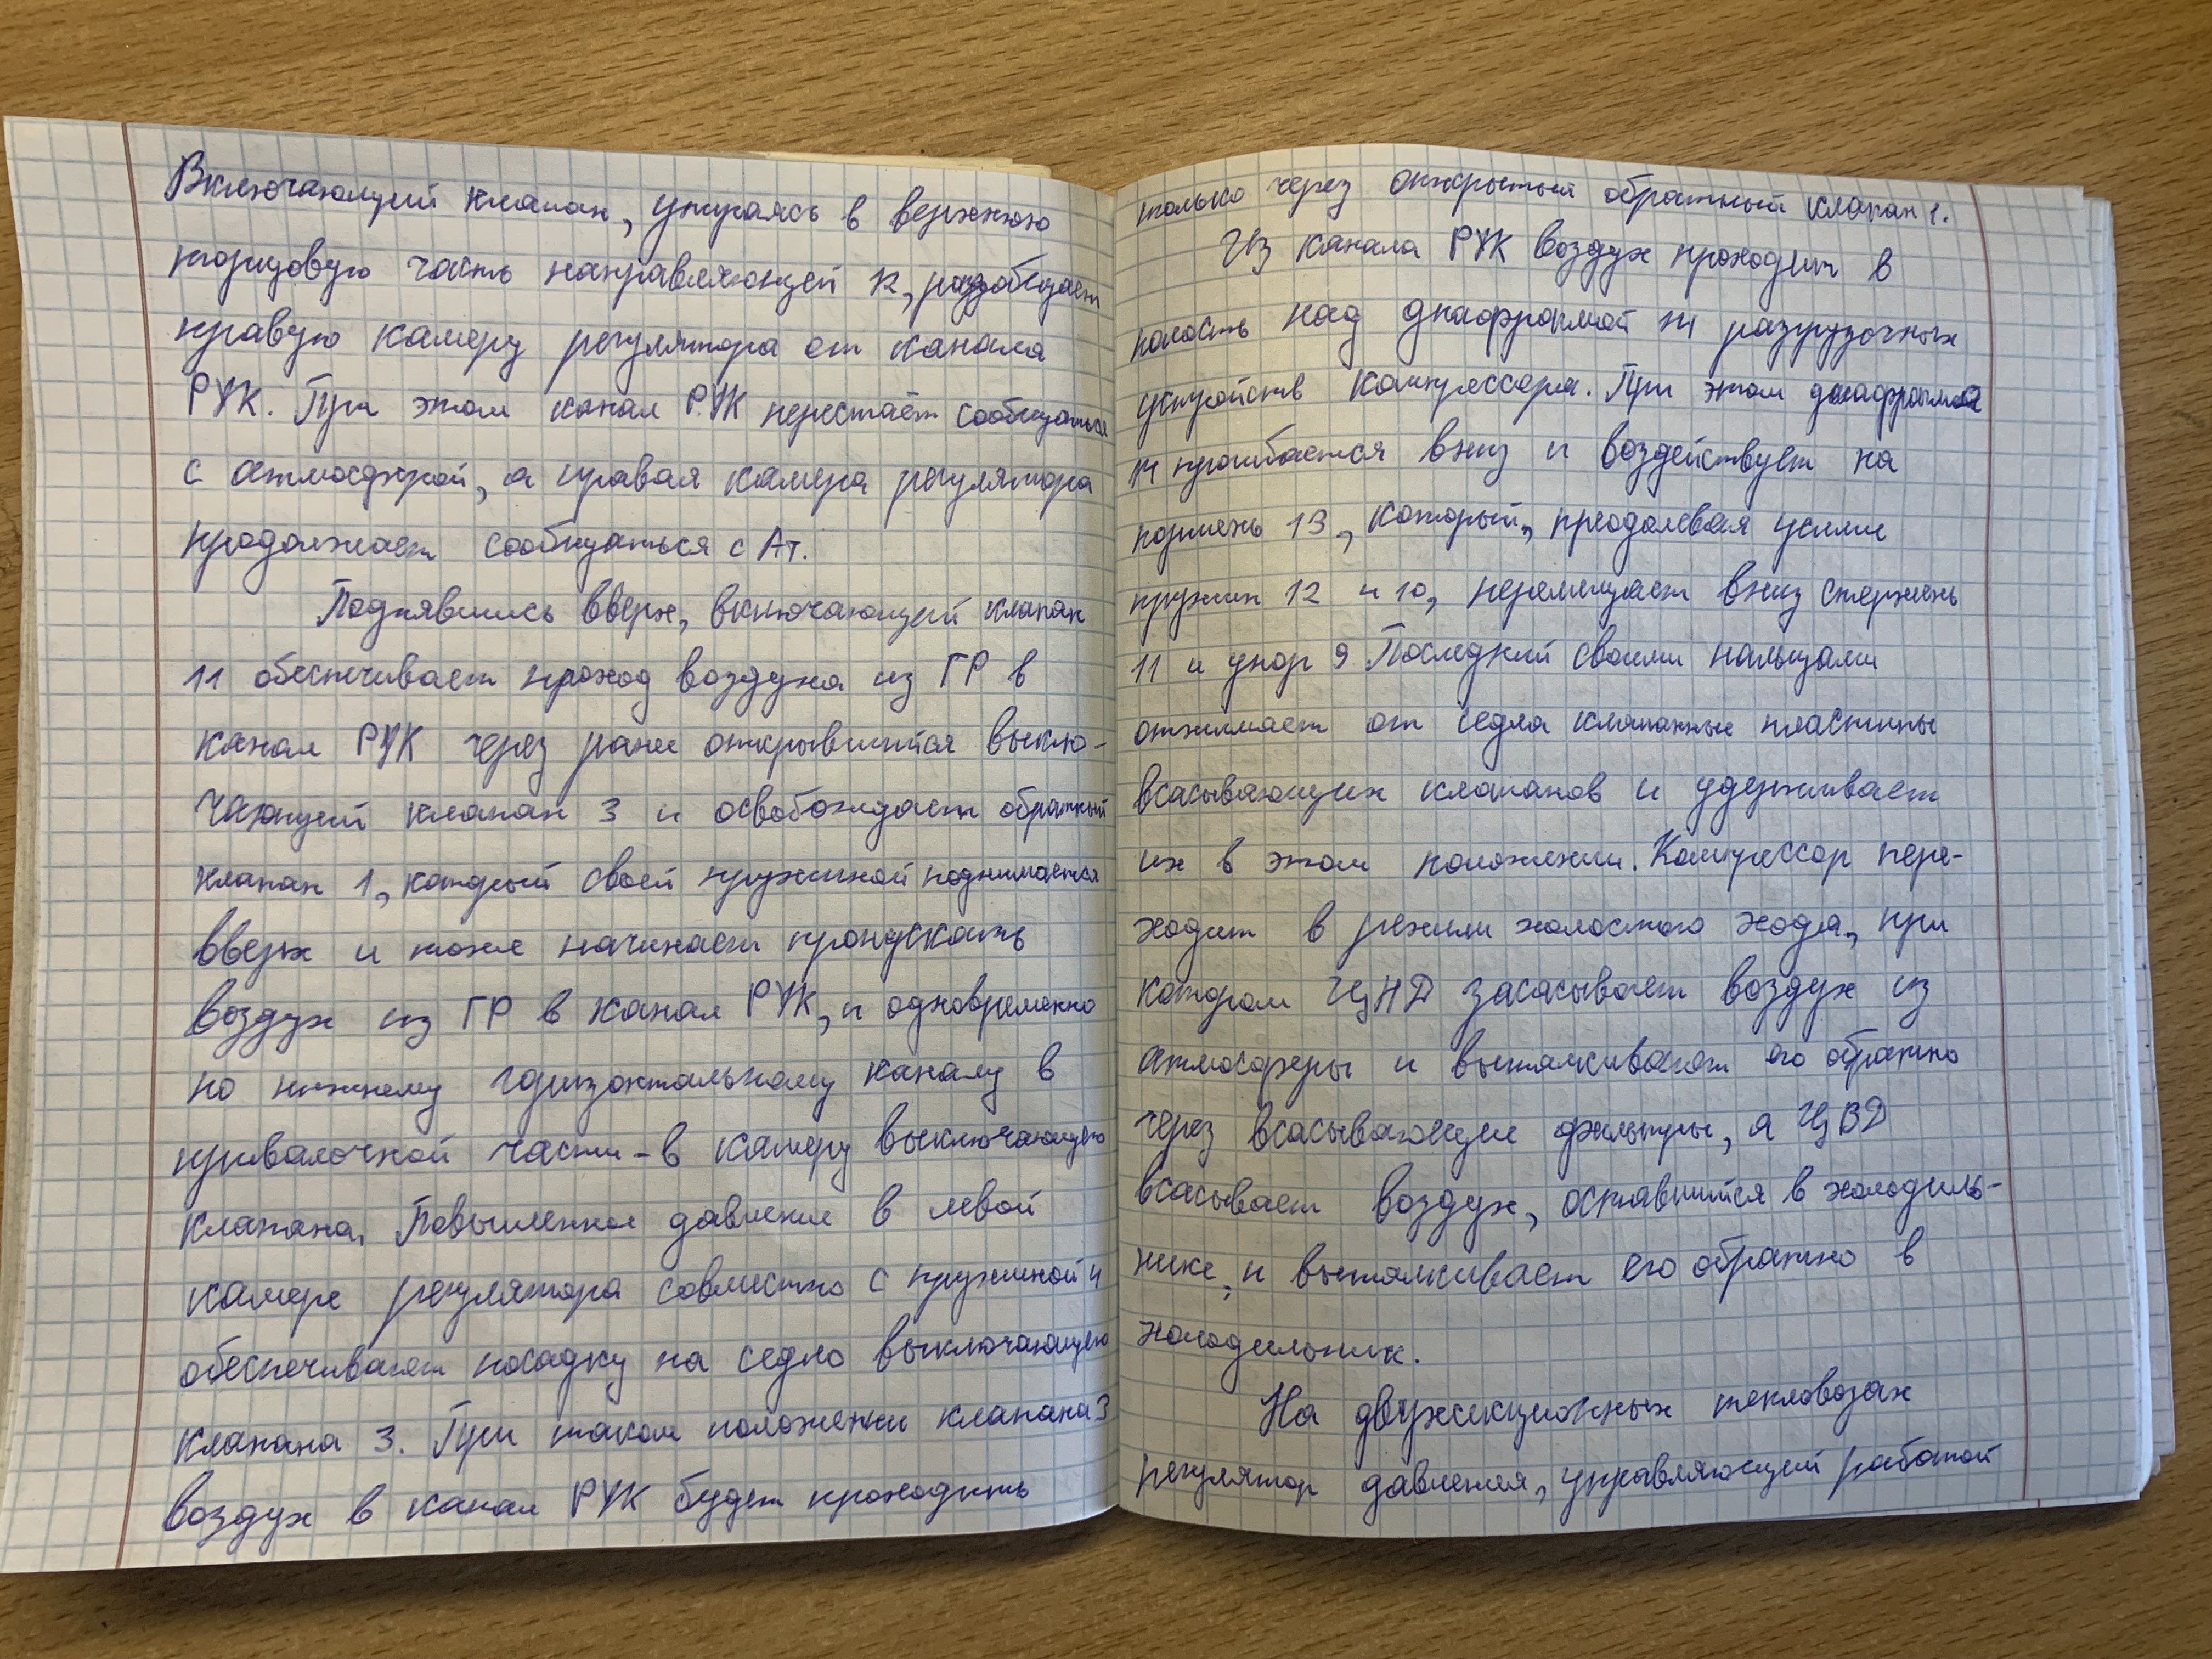 Включающий клапан, упираясь в верхнюю
торцовую часть направляющей 12, разобщает
правую камеру регулятора от канала
РУК. При этом канал РУК перестаёт сообщаться
с атмосферой, а правая камера регулятора
продолжает сообщаться с Ат.
Поднявшись вверх, включающий клапан
11 обеспечивает проход воздуха из ГР в
канал РУК через ранее открывшийся выклю-
чающий клапан 3 и освобождает обратный
клапан 1, который своей пружиной поднимается
вверх и тоже начинает пропускать
воздух из ГР в канал РУК, и одновременно
по нижнему горизонтальному каналу в
привалочной части - в камеру выключающего
клапана. Повышенное давление в левой
камере регулятора совместно с пружиной 4
обеспечивает посадку на седло выключающего
клапана 3. При таком положении клапана 3
воздух в канал РУК будет проходить
только через открытый обратный клапан 1.
Из канала РУК воздух проходит в
полость над диафрагмой 14 разгрузочных
устройств компрессора. При этом диафрагма
14 прогибается вниз и воздействует на
поршень 13, который, преодолевая усилие
пружин 12 и 10, перемещает вниз стержень
11 и упор 9 Последний своими пальцами
отжимает от седла клапанные пластины
всасывающих клапанов и удерживает
их в этом положении. Компрессор пере-
ходит в режим холостого хода, при
котором ЦНД засасывает воздух из
атмосферы и выталкивает его обратно
через всасывающие фильтры, а ЦВД
всасывает воздух, оставшийся в холодиль-
нике, и выталкивает его обратно в
холодильник.
На двухсекционных тепловозах
регулятор давления, управляющий работой